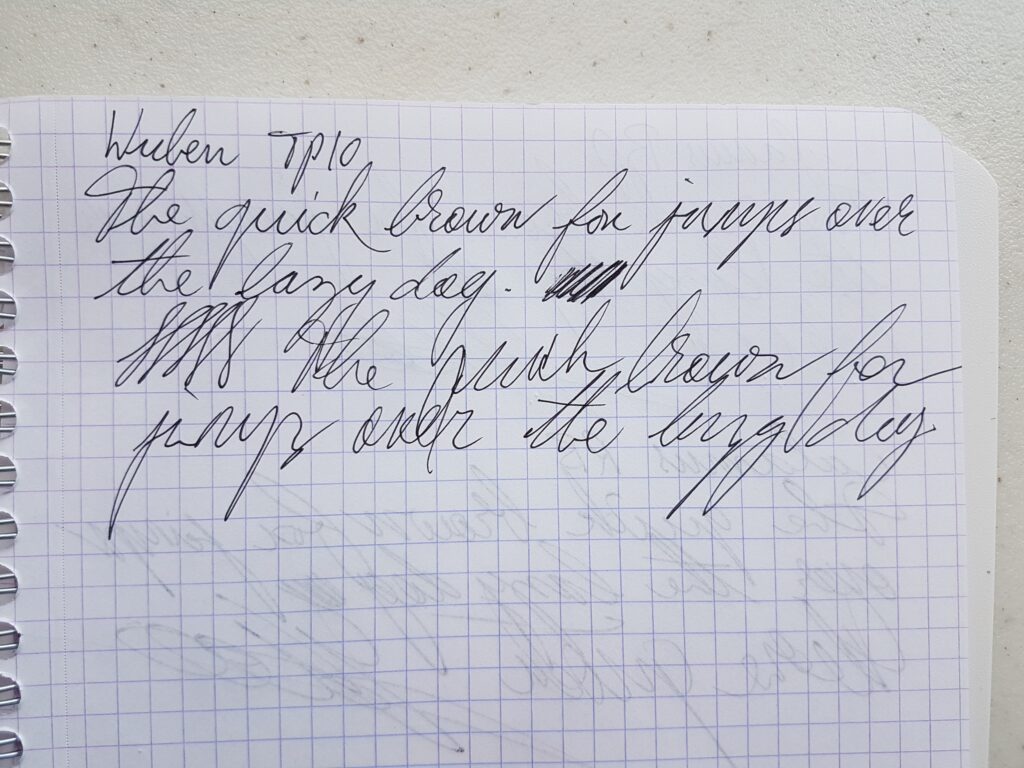 Wuben TP10
The quick brown fox jumps over
the lazy dog.
The quick brown fox
jumps over the lazy dog